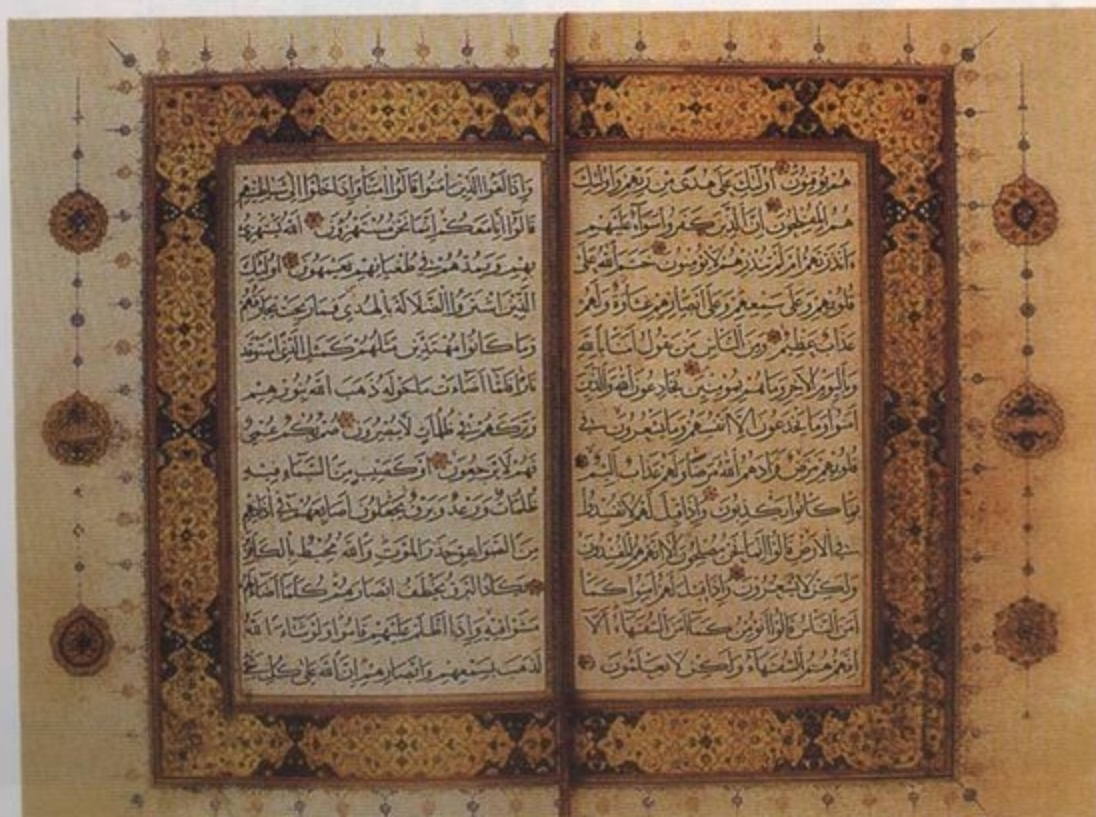 هُمْ يُوقِنُونَ أُولَٰئِكَ عَلَىٰ هُدًى مِن رَبِّهِمْ وَأُولَٰئِكَ
هُمُ الْمُفْلِحُونَ إِنَّ الَّذِينَ كَفَرُوا سَوَاءٌ عَلَيْهِمْ
ءَأَنذَرْتَهُمْ أَمْ لَمْ تُنذِرْهُمْ لَا يُؤْمِنُونَ خَتَمَ اللَّهُ عَلَىٰ
قُلُوبِهِمْ وَعَلَىٰ سَمْعِهِمْ وَعَلَىٰ أَبْصَارِهِمْ غِشَاوَةٌ وَلَهُمْ
عَذَابٌ عَظِيمٌ وَمِنَ النَّاسِ مَن يَقُولُ آمَنَّا بِاللَّهِ
وَبِالْيَوْمِ الْآخِرِ وَمَا هُم بِمُؤْمِنِينَ يُخَادِعُونَ اللَّهَ وَالَّذِينَ
آمَنُوا وَمَا يَخْدَعُونَ إِلَّا أَنفُسَهُمْ وَمَا يَشْعُرُونَ فِي
قُلُوبِهِم مَرَضٌ فَزَادَهُمُ اللَّهُ مَرَضًا وَلَهُمْ عَذَابٌ أَلِيمٌ
بِمَا كَانُوا يَكْذِبُونَ وَإِذَا قِيلَ لَهُمْ لَا تُفْسِدُوا
فِي الْأَرْضِ قَالُوا إِنَّمَا نَحْنُ مُصْلِحُونَ أَلَا إِنَّهُمْ هُمُ الْمُفْسِدُونَ
وَلَٰكِن لَا يَشْعُرُونَ وَإِذَا قِيلَ لَهُمْ آمِنُوا كَمَا
آمَنَ النَّاسُ قَالُوا أَنُؤْمِنُ كَمَا آمَنَ السُّفَهَاءُ أَلَا
إِنَّهُمْ هُمُ السُّفَهَاءُ وَلَٰكِن لَا يَعْلَمُونَ
وَإِذَا لَقُوا الَّذِينَ آمَنُوا قَالُوا آمَنَّا وَإِذَا خَلَوْا إِلَىٰ شَيَاطِينِهِمْ
قَالُوا إِنَّا مَعَكُمْ إِنَّمَا نَحْنُ مُسْتَهْزِئُونَ اللَّهُ يَسْتَهْزِئُ
بِهِمْ وَيَمُدُّهُمْ فِي طُغْيَانِهِمْ يَعْمَهُونَ أُولَٰئِكَ
الَّذِينَ اشْتَرَوُا الضَّلَالَةَ بِالْهُدَىٰ فَمَا رَبِحَتْ تِجَارَتُهُمْ
وَمَا كَانُوا مُهْتَدِينَ مَثَلُهُمْ كَمَثَلِ الَّذِي اسْتَوْقَدَ
نَارًا فَلَمَّا أَضَاءَتْ مَا حَوْلَهُ ذَهَبَ اللَّهُ بِنُورِهِمْ
وَتَرَكَهُمْ فِي ظُلُمَاتٍ لَا يُبْصِرُونَ صُمٌّ بُكْمٌ عُمْيٌ
فَهُمْ لَا يَرْجِعُونَ أَوْ كَصَيِّبٍ مِنَ السَّمَاءِ فِيهِ
ظُلُمَاتٌ وَرَعْدٌ وَبَرْقٌ يَجْعَلُونَ أَصَابِعَهُمْ فِي آذَانِهِم
مِنَ الصَّوَاعِقِ حَذَرَ الْمَوْتِ وَاللَّهُ مُحِيطٌ بِالْكَافِرِينَ
يَكَادُ الْبَرْقُ يَخْطَفُ أَبْصَارَهُمْ كُلَّمَا أَضَاءَ لَهُم
مَشَوْا فِيهِ وَإِذَا أَظْلَمَ عَلَيْهِمْ قَامُوا وَلَوْ شَاءَ اللَّهُ
لَذَهَبَ بِسَمْعِهِمْ وَأَبْصَارِهِمْ إِنَّ اللَّهَ عَلَىٰ كُلِّ شَيْءٍ